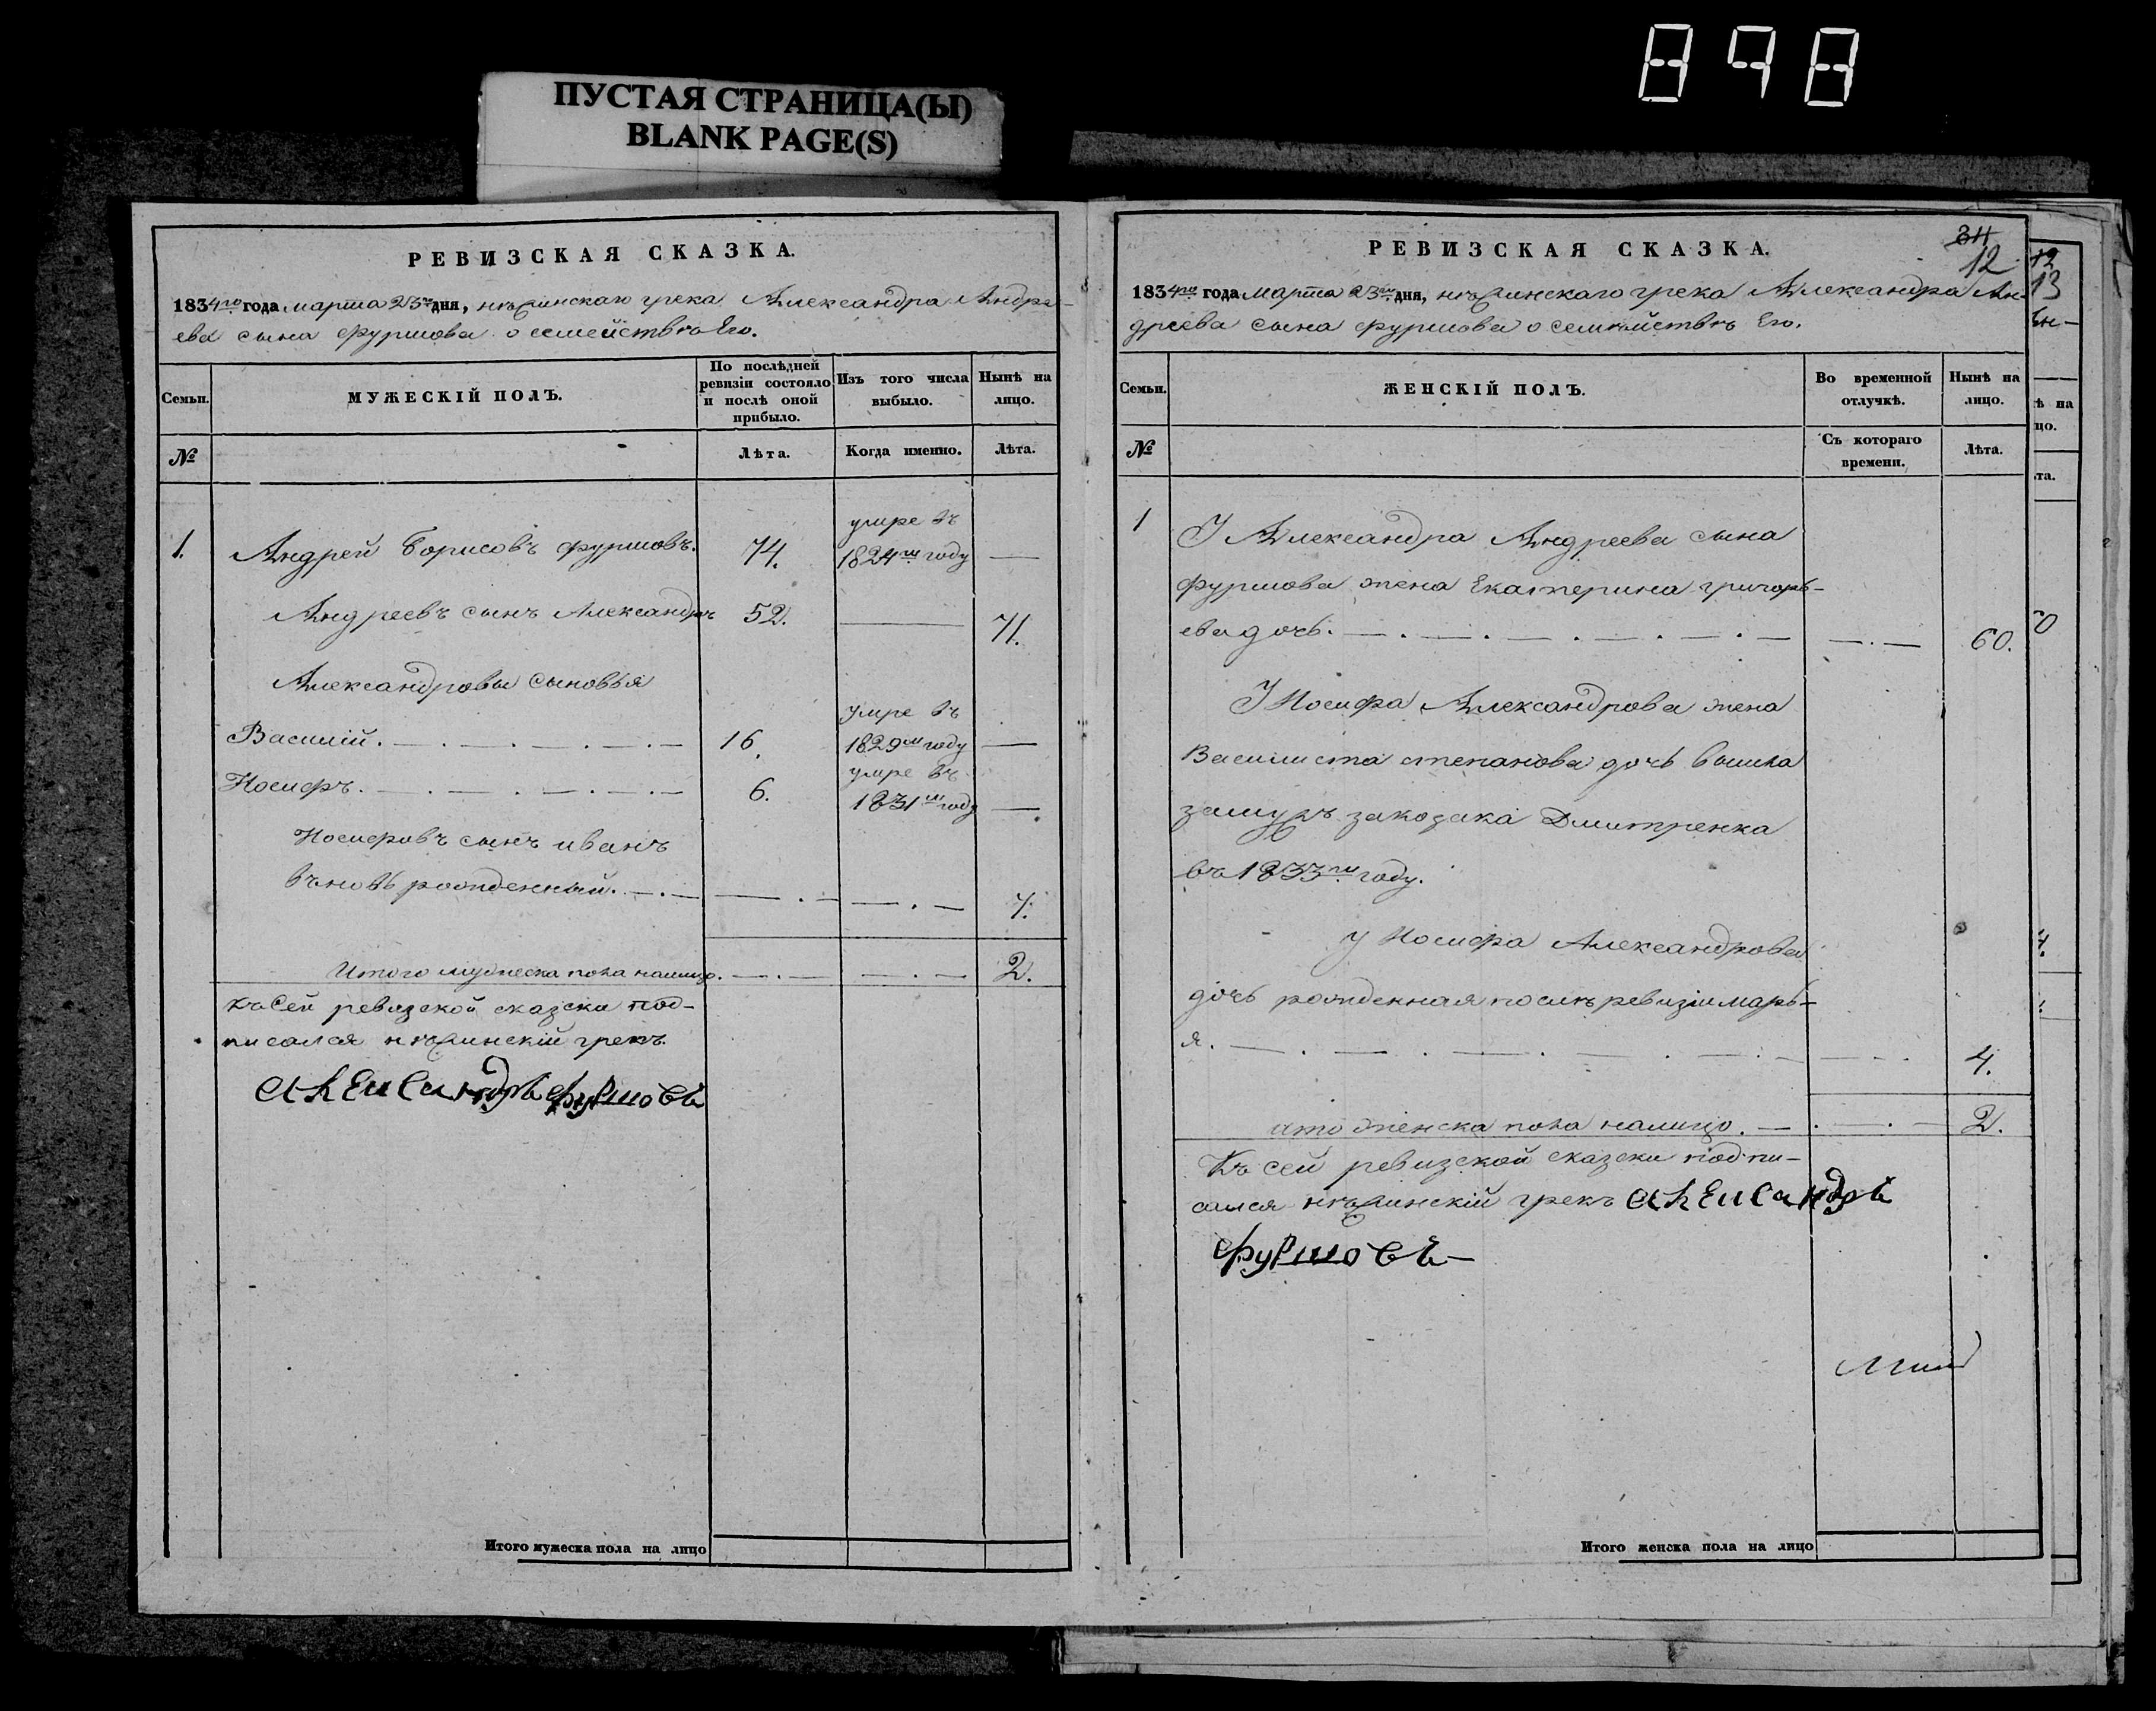 898
ПУСТАЯ СТРАНИЦА(Ы)
BLANK PAGE(S)
РЕВИЗСКАЯ СКАЗКА.
1834го года марта 23го дня, нѣжинскаго грека Александра Андре-
ева сына Фуршова о семействѣ Его.
Семьи.
МУЖЕСКІЙ ПОЛЪ.
По послѣдней ревизіи состояло и послѣ оной прибыло.
Изъ того числа выбыло.
Нынѣ на лицо.
№
Лѣта.
Когда именно.
Лѣта.
умре въ
1. Андрей Борисовъ Фуршовъ. 74. 1824м году —
Андреевъ сынъ Александръ 52. — 71.
Александровы сыновья
умре въ
Василій. 16. 1829м году —
умре въ
Иосифъ. 6. 1831м году —
Иосифовъ сынъ иванъ
въновь рожденный. 7.
Итого мужеска пола налицо. 2.
Къ Сей ревизской сказки под-
писался нѣжинскій грекъ
Александръ Фуршовъ
Итого мужеска пола на лицо
РЕВИЗСКАЯ СКАЗКА.
34
12
1834го года Марта 23го дня, нѣжинскаго грека Александра Ан-
дреева сына Фуршова о семѣйствѣ Его.
Семьи.
ЖЕНСКІЙ ПОЛЪ.
Во временной отлучкѣ.
Нынѣ на лицо.
№
Съ котораго времени.
Лѣта.
1 У Александра Андреева сына
Фуршова жена Екатерина григорь-
ева дочь. 60.
У Иосифа Александрова жена
Василиста степанова дочь вышла
замужъ закозака Дмитренка
въ 1833м году.
у Иосифа Александрова
дочь рожденная послѣ ревизіи марь-
я. 4.
ито женска пола налицо. 2.
Къ сей ревизской сказки подпи-
сался нѣжинскій грекъ Александръ
Фуршовъ
Итого женска пола на лицо
12
13
ѣ на
цо.
та.